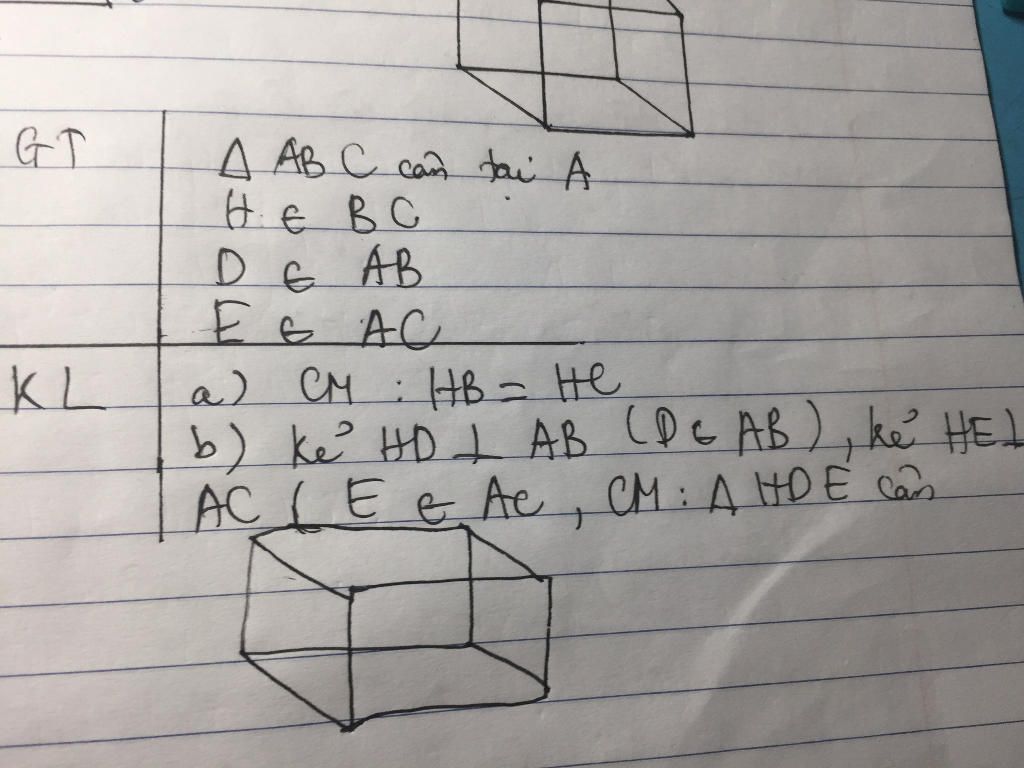 GT
Δ ABC cân tại A
H ∈ BC
D ∈ AB
E ∈ AC
KL
a) CM : HB = HC
b) kẻ HD ⊥ AB (D ∈ AB), kẻ HE ⊥
AC ( E ∈ AC, CM : Δ HDE cân